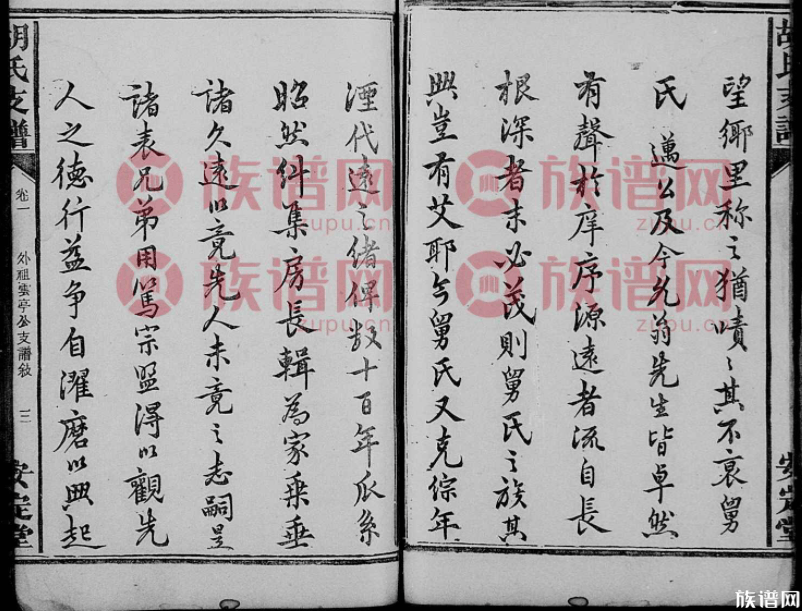 望鄉里称之猶嘖〻其不衰舅
氏 邁公及今允翁先生皆卓然
有聲於庠序源遠者流自長
根深者末必茂則舅氏之族其
興豈有艾耶今舅氏又克綜年
湮代遠之緒俾数十百年瓜系
昭然纠集房長輯為家乗垂
諸久遠以竟先人未竟之志嗣是
諸表兄弟用篤宗盟得以觀先
人之德行益争自濯磨以興起
胡氏支譜
卷一
外祖雲亭公支譜敘
三
安定堂
胡氏支譜
安定堂
族谱网
zupu.cn
族谱网
zupu.cn
族谱网
zupu.cn
族谱网
zupu.cn
族谱网